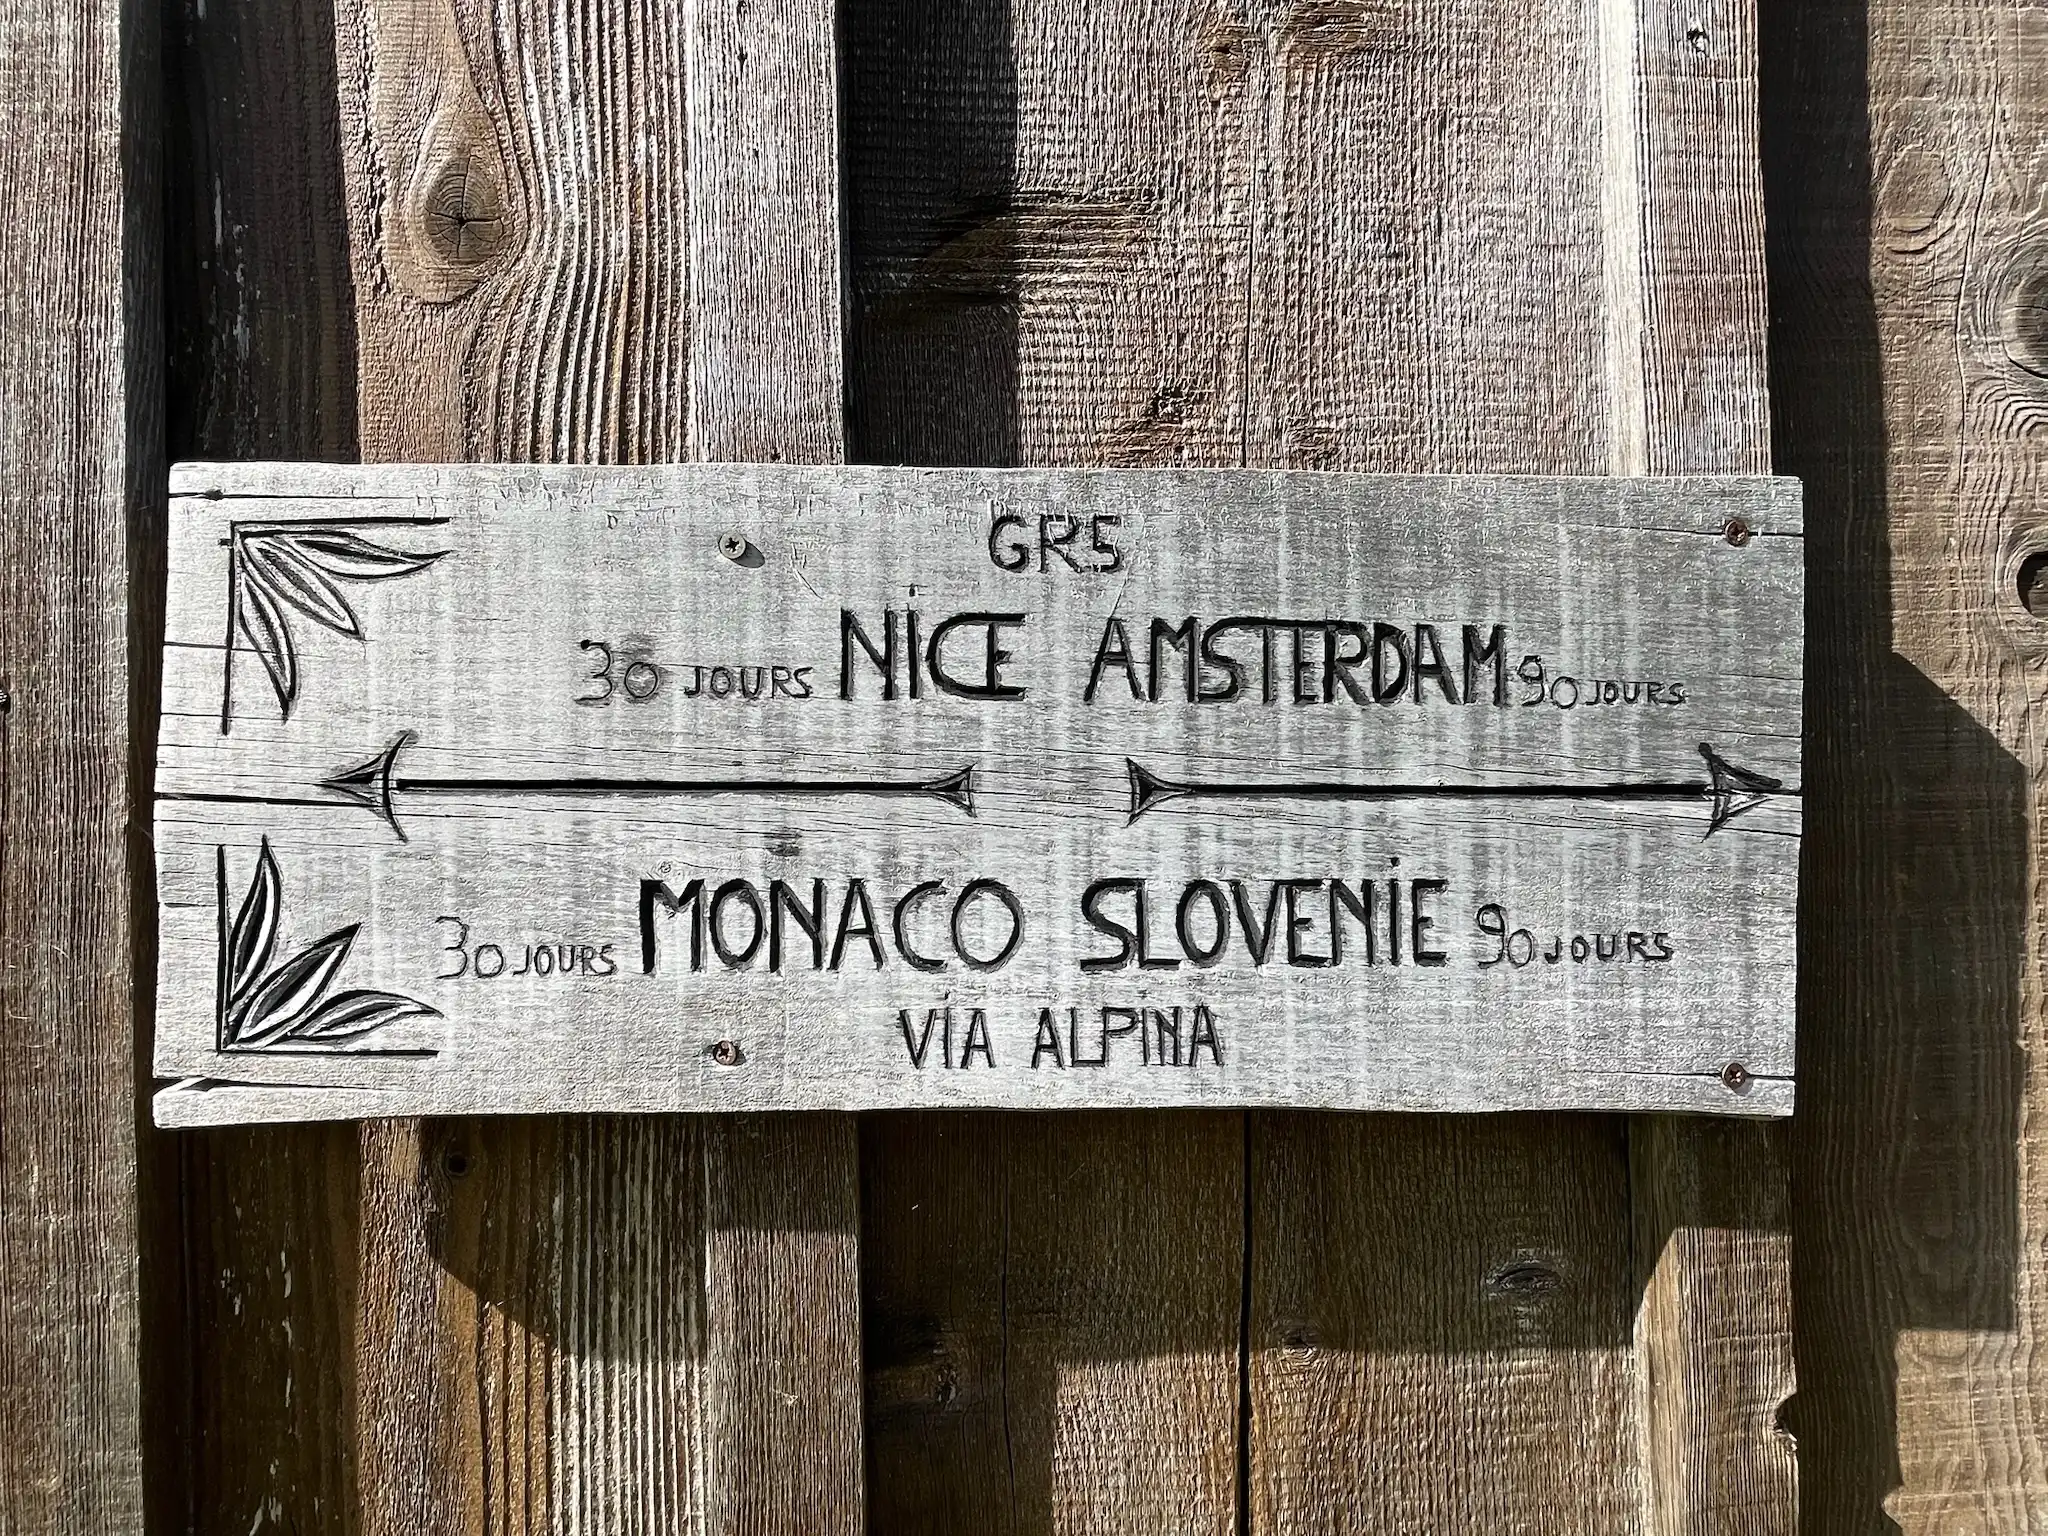 GR5
30 JOURS NICE AMSTERDAM 90 JOURS
30 JOURS MONACO SLOVENIE 90 JOURS
VIA ALPINA